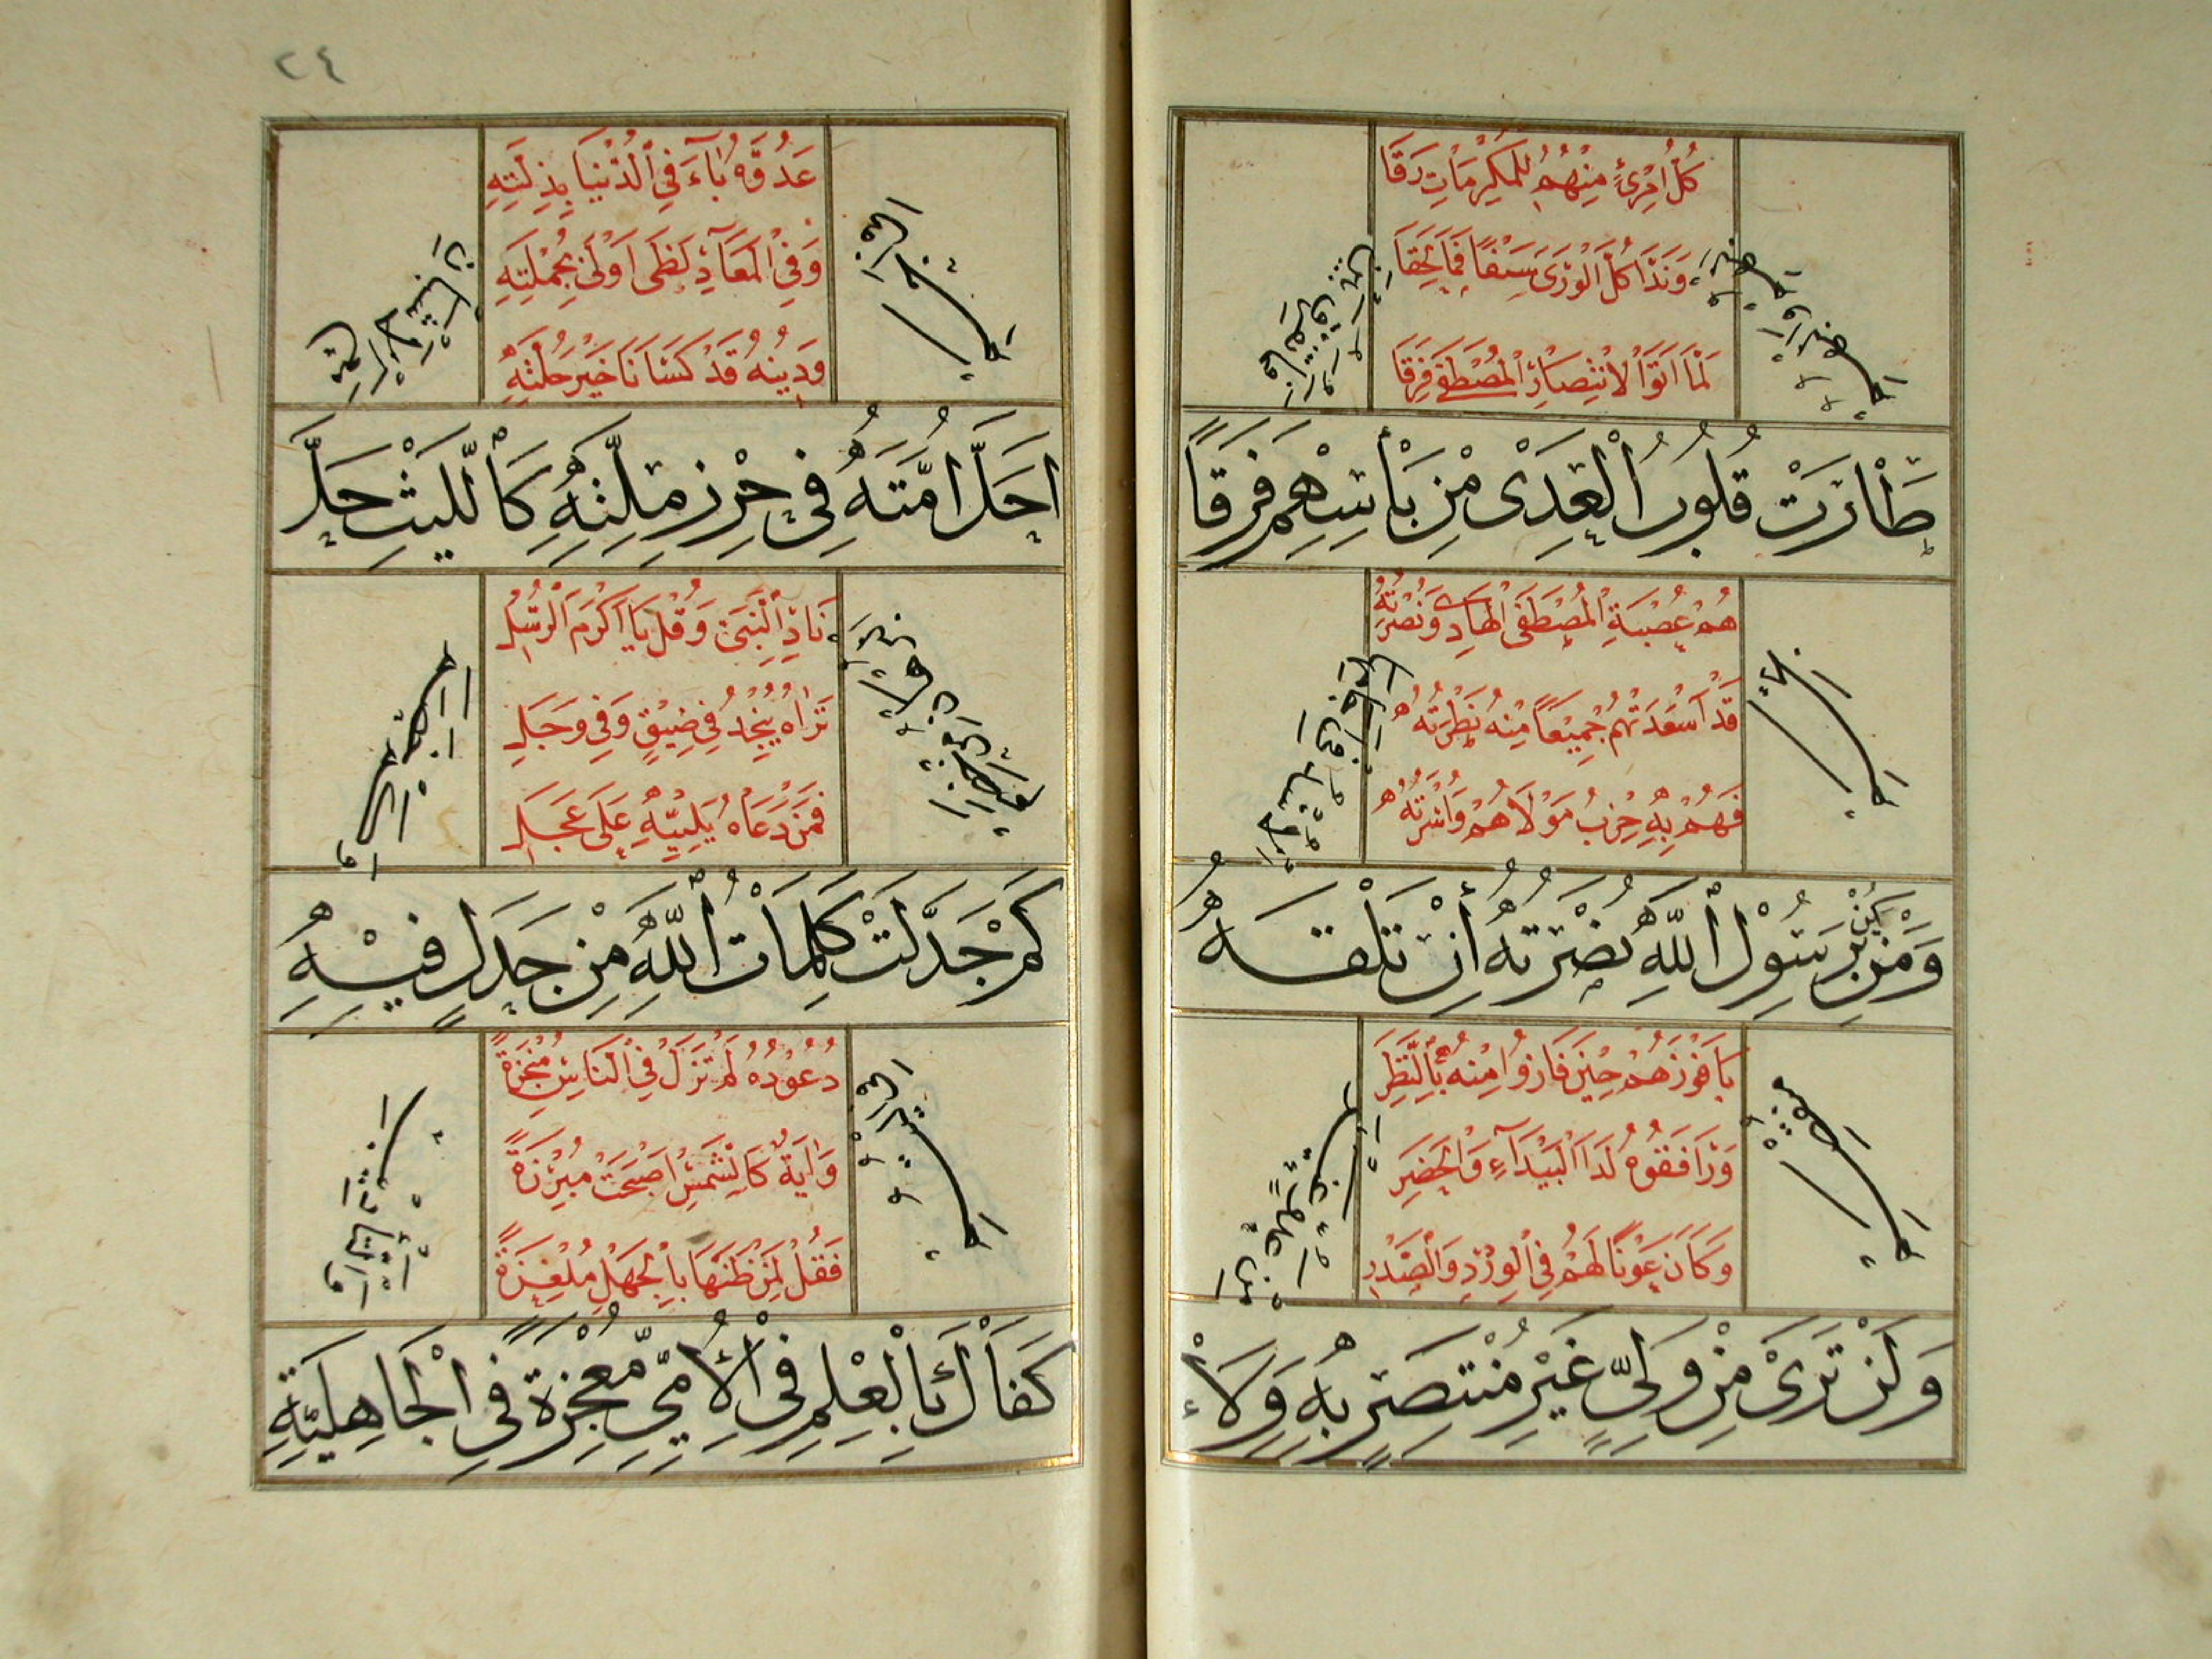 كُلُّ امْرِئٍ مِنْهُمُ لِلْمَكْرُمَاتِ رَقَا
وَبَذَّا كُلَّ الْوَرَى سَبْقًا فَمَا لُحِقَا
لَمَّا اَتَوْا لِانْتِصَارِ الْمُصْطَفَى فِرَقَا
طَارَتْ قُلُوبُ الْعِدَى مِنْ بَأْسِهِمْ فَرَقًا
هُمْ عُصْبَةِ الْمُصْطَفَى الْهَادِى وَنُصْرَتُهُ
قَدْ اَسْعَدَتْهُمْ جَمِيعًا مِنْهُ نَظْرَتُهُ
فَهُمْ بِهِ حِزْبُ مَوْلَاهُمْ وَاُسْرَتُهُ
وَمَنْ يَكُنْ بِرَسُولِ اللهِ نُصْرَتُهُ أِنْ تَلْقَهُ
يَا فَوْزَهُمْ حِيْنَ فَازُوا مِنْهُ بِالنَّظَرِ
وَرَافَقُوهُ لَدَا الْبَيْدَآءِ وَالْحَضَرِ
وَكَانَ عَوْنًا لَهُمْ فِي الْوِرْدِ وَالصَّدَرِ
وَلَنْ تَرَىْ مِنْ وَلِىٍّ غَيْرِ مُنْتَصِرٍ بِهِ وَلَا
٢٤
عَدُوُّهُ بَآءَ فِي الدُّنْيَا بِذِلَّتِهِ
وَفِي الْمَعَادِ لَظَى اَوْلَى بِجُمْلَتِهِ
وَدِينُهُ قَدْ كَسَانَا خَيْرَ حُلَّتِهِ
اَحَلَّ اُمَّتَهُ فِى حِرْزِ مِلَّتِهِ كَاللَّيْثِ حَلَّ
نَادِ النَّبِيَّ وَقُلْ يَا اَكْرَمَ الرُّسُلِ
تَرَاهُ يُنْجِدُ فِي ضِيْقٍ وَفِي وَجَلِ
فَمَنْ دَعَاهُ يُلَبِّيْهِ عَلَى عَجَلِ
كَمْ جَدَّلَتْ كَلِمَاتُ اللهِ مِنْ جَدَلٍ فِيْهِ
وُعُوْدُهُ لَمْ تَزَلْ فِي النَّاسِ مُنْجَزَةً
وَايَةٌ كَالشَّمْسِ اَصْبَحَتْ مُبْرَزَةً
فَقُلْ لِمَنْ ظَنَّهَا بِالْجَهْلِ مُلْغِزَةً
كَفَاكَ بِالْعِلْمِ فِى الْاُمِّيِّ مُعْجِزَةً فِى الْجَاهِلِيَّةِ